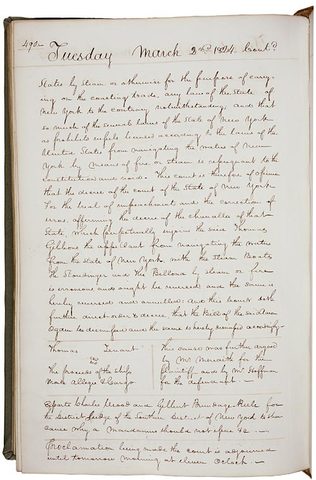 490
Tuesday March 2nd 1824. Cont'd
States by steam or otherwise for the purpose of carry-
ing on the coasting trade, any law of the State of
New York to the contrary notwithstanding, and that
so much of the several laws of the State of New York
as prohibits vessels licensed according to the laws of the
United States from navigating the waters of New
York by means of fire or steam is repugnant to the
Constitution and void. This court is therefore of opinion
that the decree of the court of the State of New York
for the trial of impeachment and the correction of
errors affirming the decree of the chancellor of that
State, which perpetually enjoins the said Thomas
Gibbons the appellant from navigating the waters
of the State of New York with the Steam Boats
the Stoudinger and the Bellona by steam or fire
is erroneous and ought to be reversed and the same is
hereby reversed and annulled: And this court doth
further direct order & decree that the Bill of the said Aaron
Ogden be dismissed and the same is hereby dismissed accordingly
Thomas Tenant
vs
The proceeds of the ship
This cause was further argued
by Mr. Meredith for the
plaintiff and by Mr. Hoffman
for the defendant.
Exparte Charles Wood and Gilbert Brundage Rule for
the District Judge of the Southern District of New York to show
cause why a Mandamus should not issue &c.
Proclamation being made the court is adjourned
until tomorrow morning at eleven O'clock.